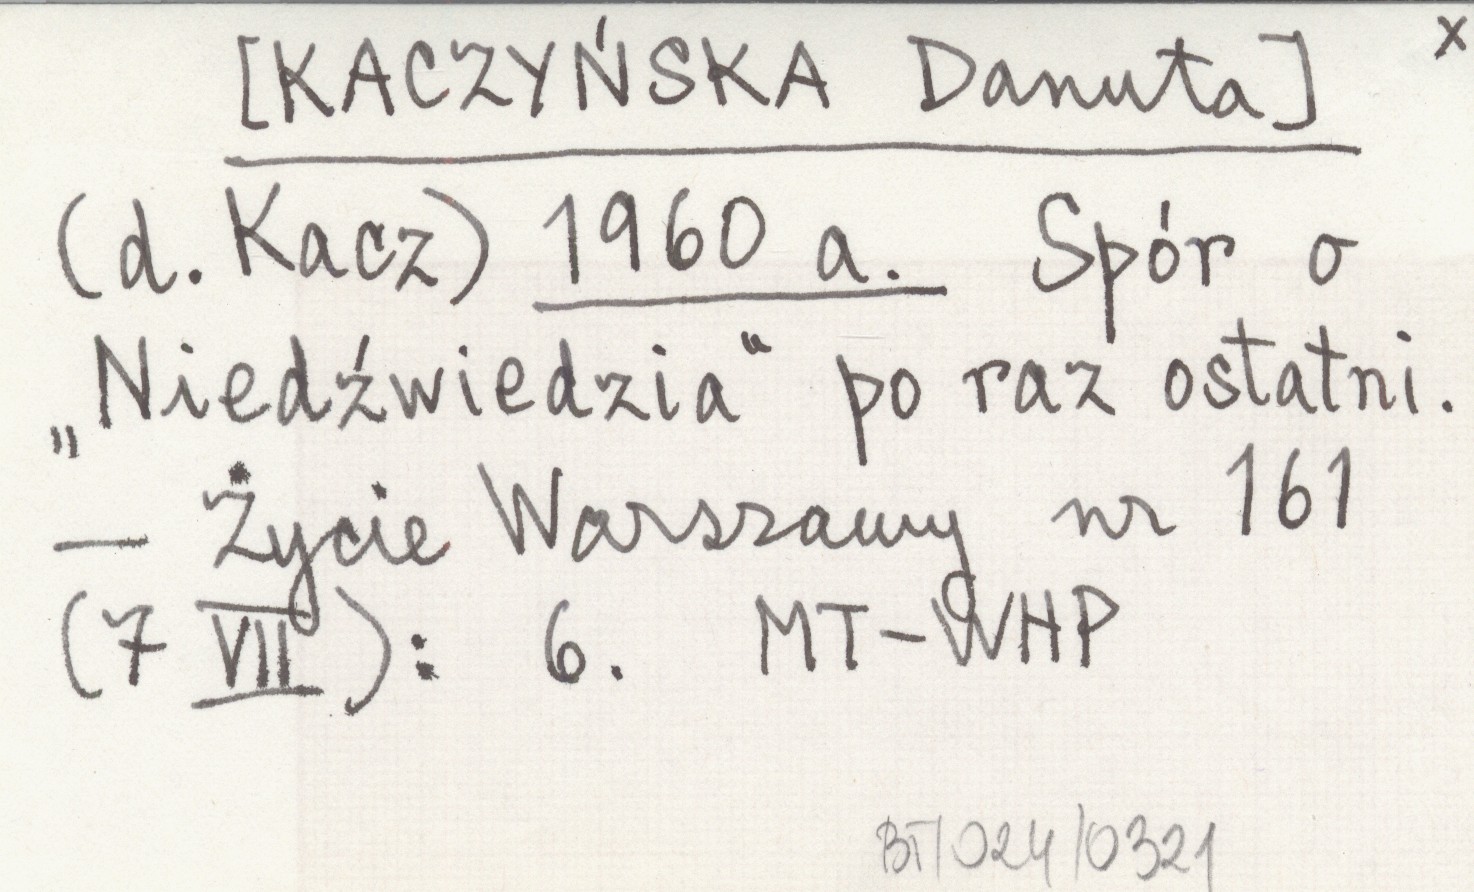 x
[KACZYŃSKA Danuta]
(d. Kacz) 1960 a. Spór o
„Niedźwiedzia“ po raz ostatni.
— Życie Warszawy nr 161
(7 VII): 6. MT-WHP
BT/024/0321